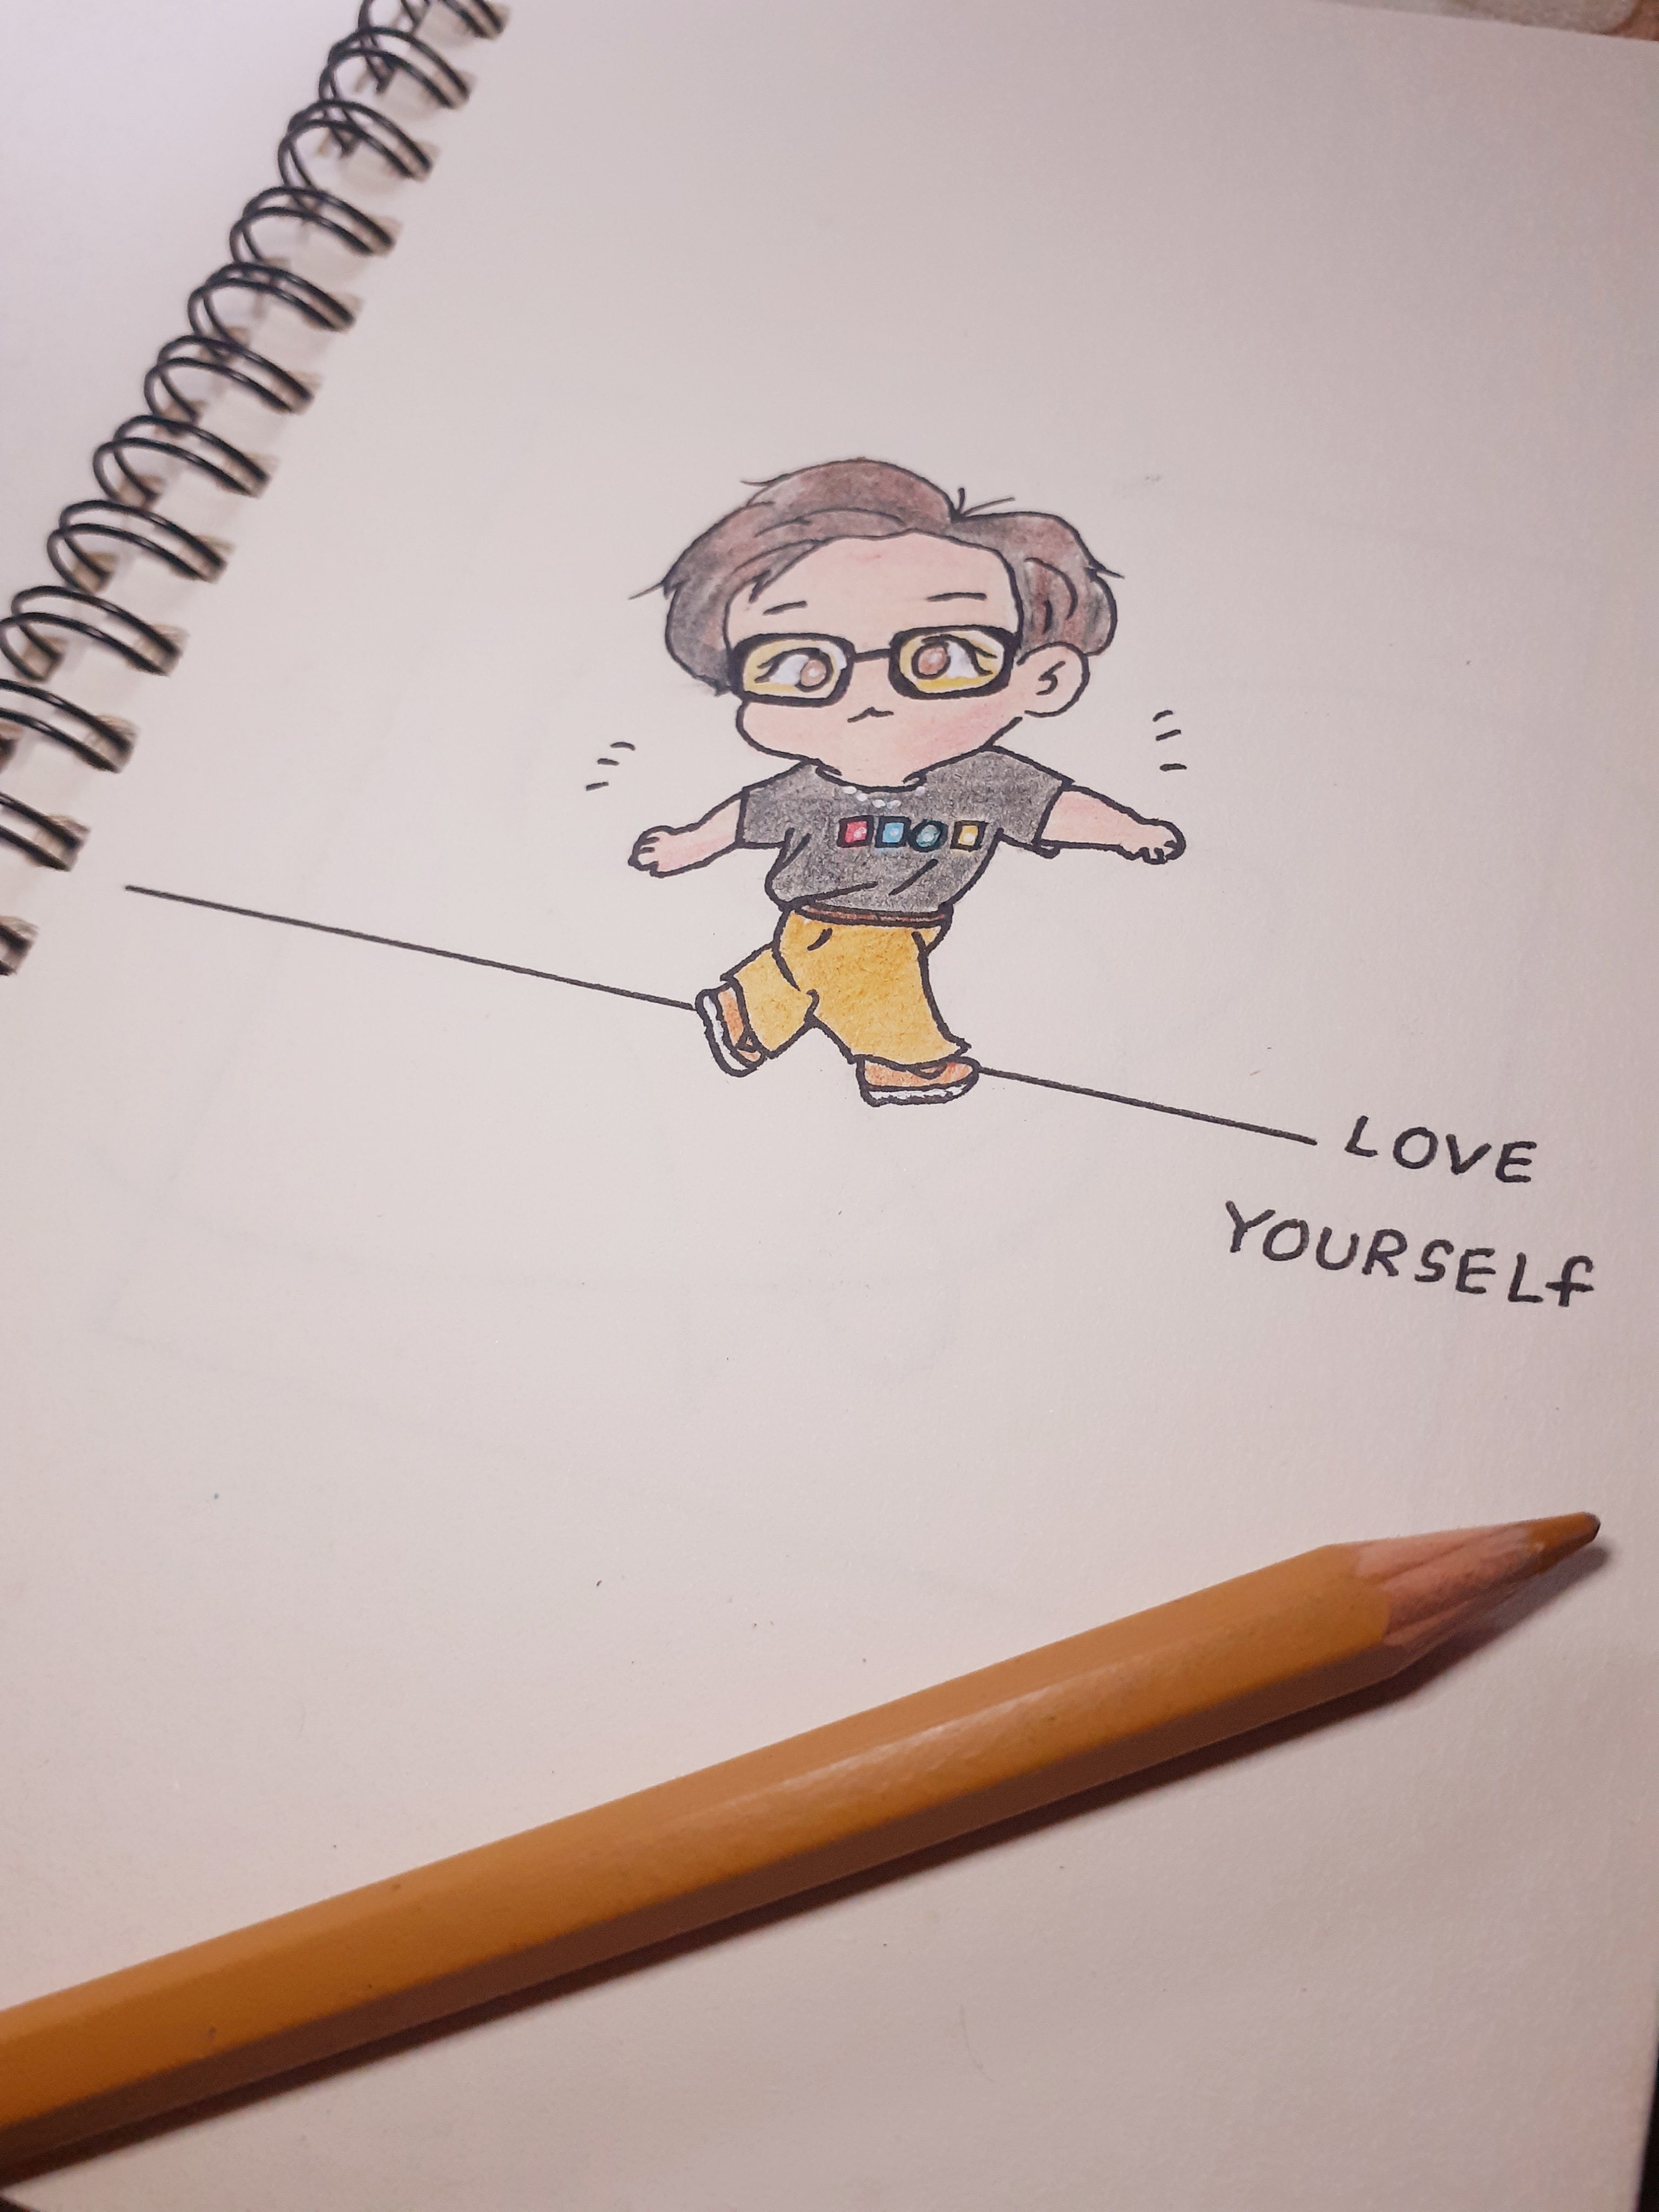 LOVE
YOURSELf